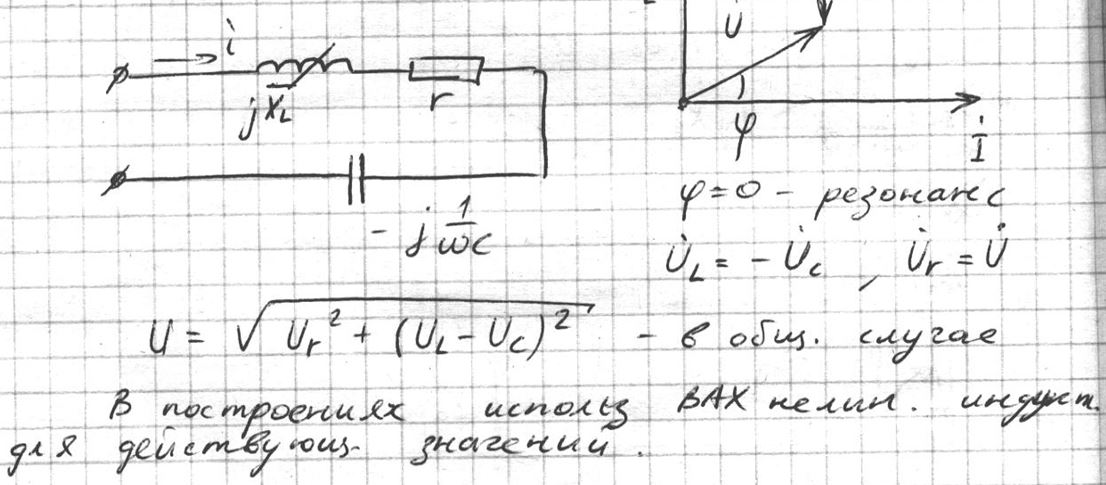 i
jX_L
r
-j 1/ωC
U̇
φ
İ
φ=0 - резонанс
U̇_L = - U̇_C , U̇_r = U̇
U = √(U_r² + (U_L - U_C)²) - в общ. случае
В построениях использ ВАХ нелин. индукт.
для действующ. значений.